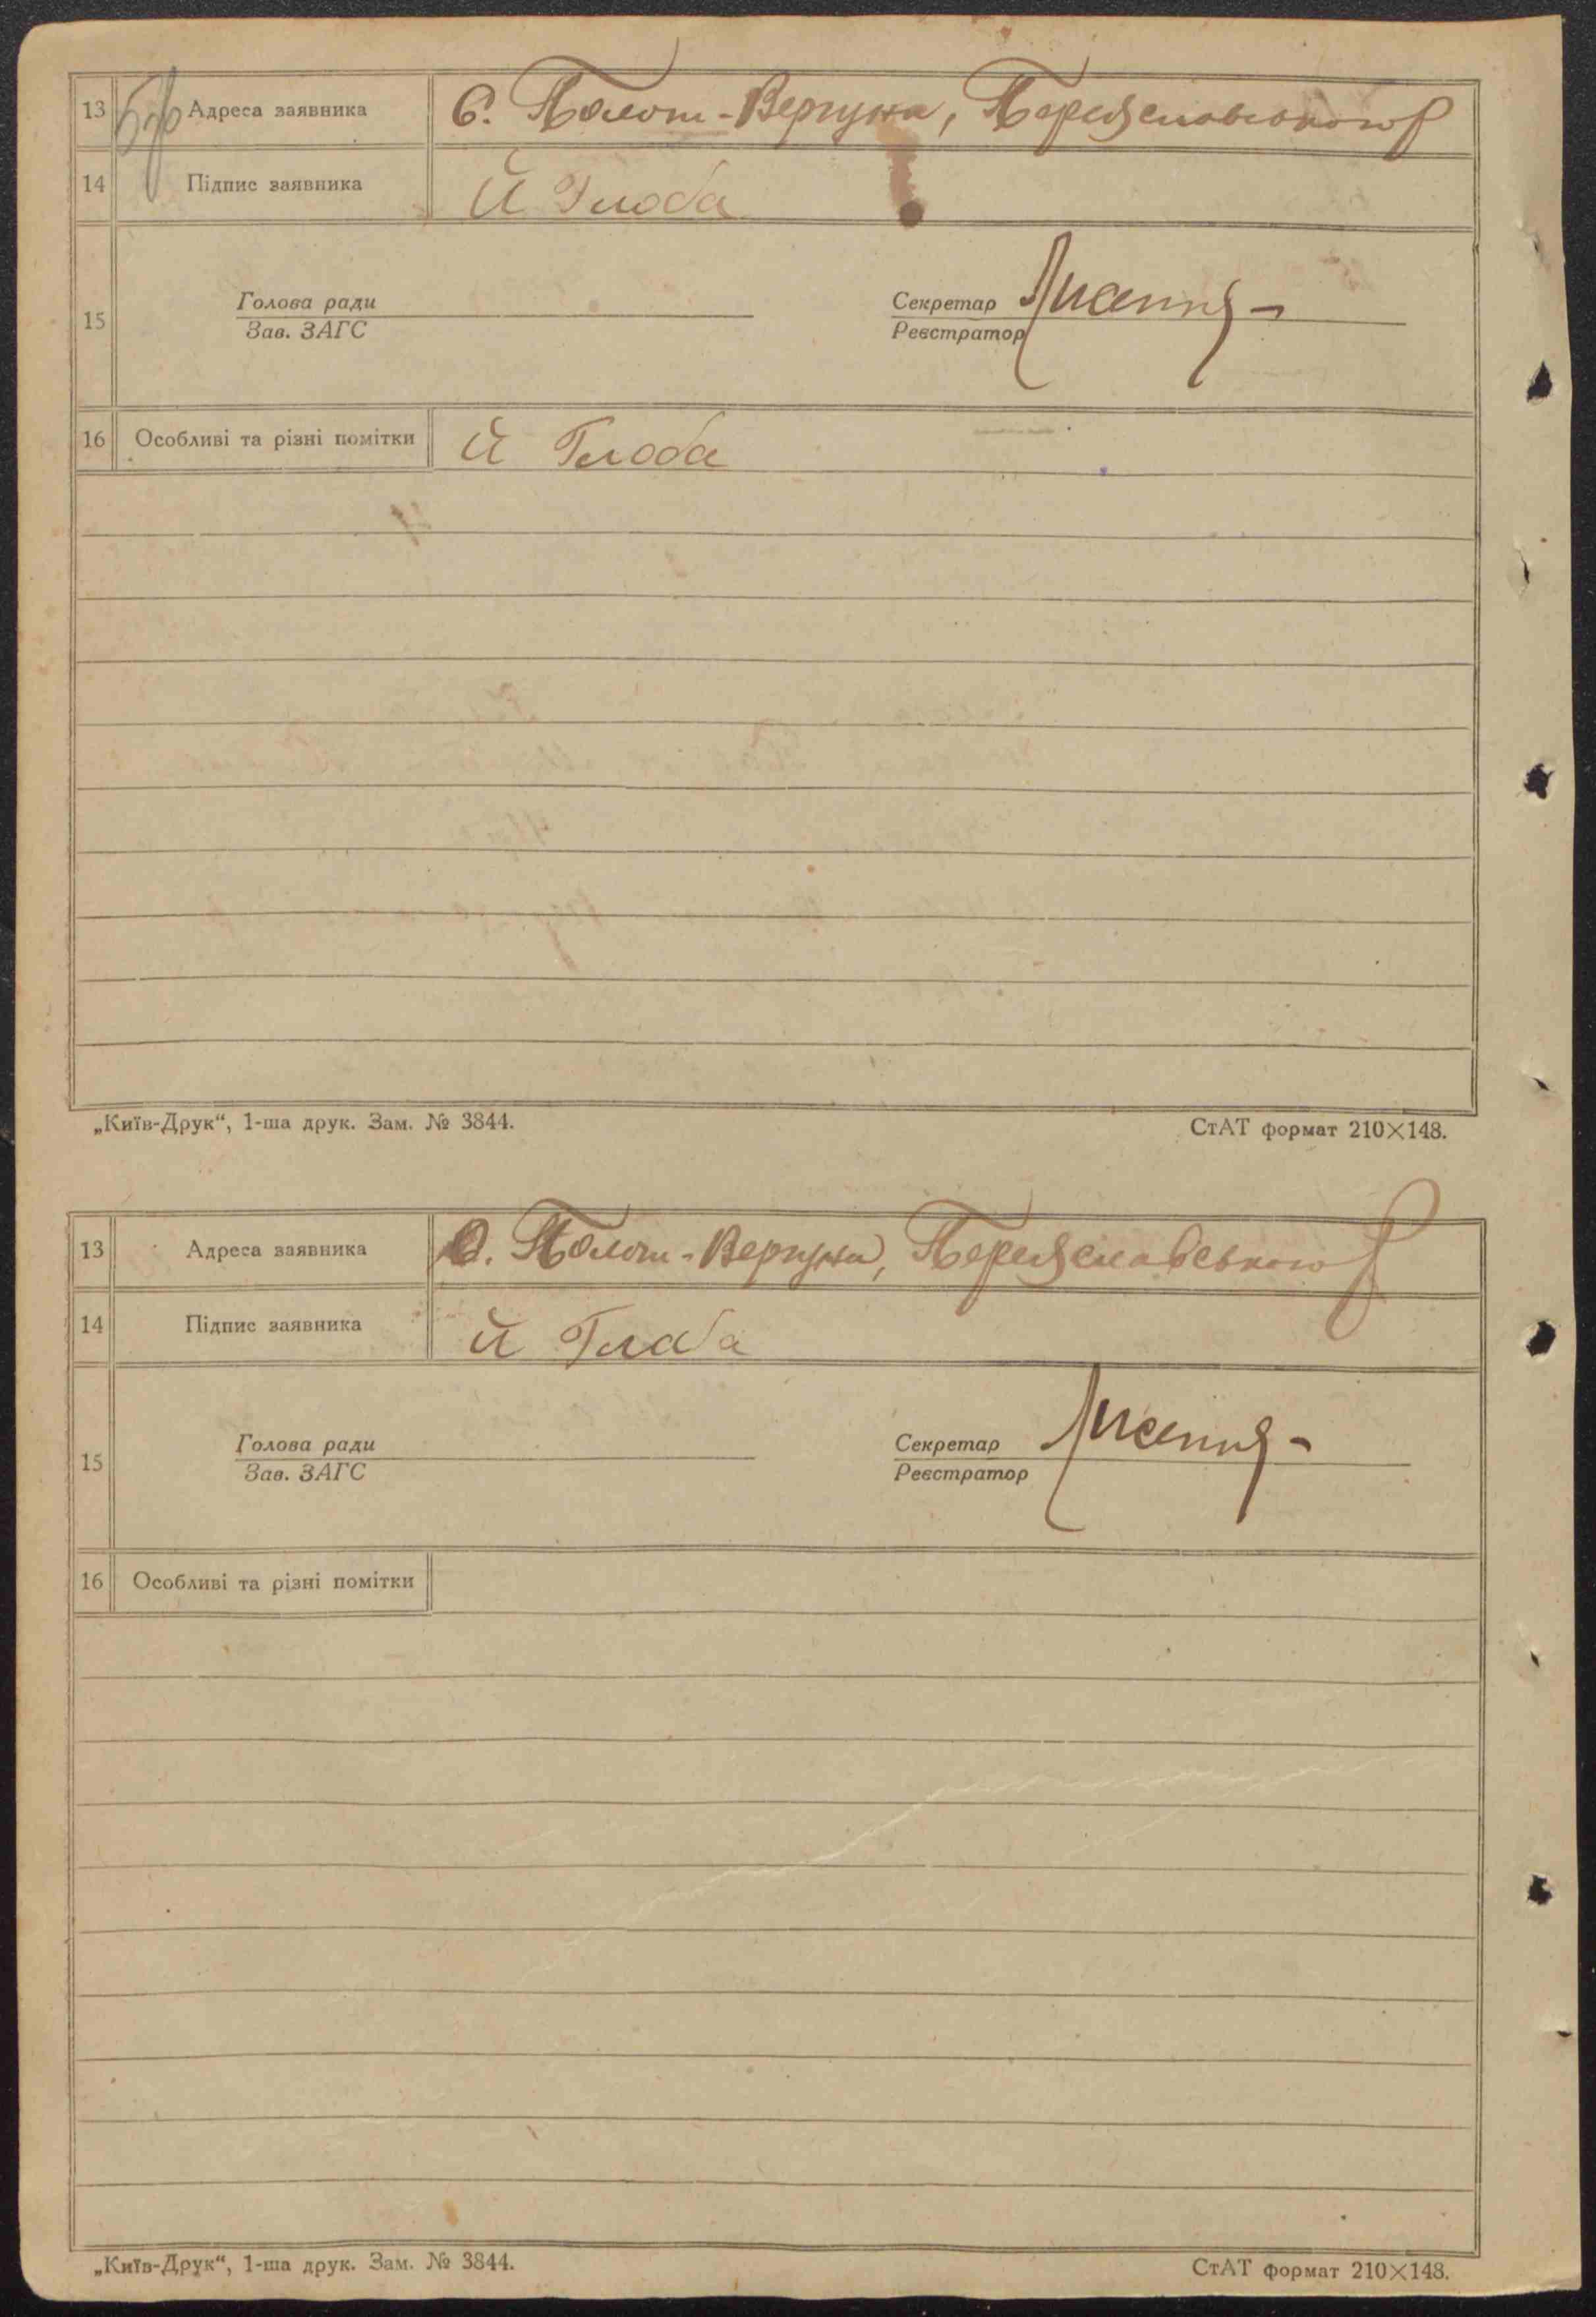 13 Адреса заявника С. Помокл-Вергуни, Переяславського р
14 Підпис заявника Й Глоба
Голова ради Секретар
15
Зав. ЗАГС Реєстратор
16 Особливі та різні помітки Й Глоба
„Київ-Друк“, 1-ша друк. Зам. № 3844. СтАТ формат 210×148.
13 Адреса заявника С. Вергуни, Переяславського р
14 Підпис заявника Й Глоба
Голова ради Секретар
15
Зав. ЗАГС Реєстратор
16 Особливі та різні помітки
„Київ-Друк“, 1-ша друк. Зам. № 3844. СтАТ формат 210×148.